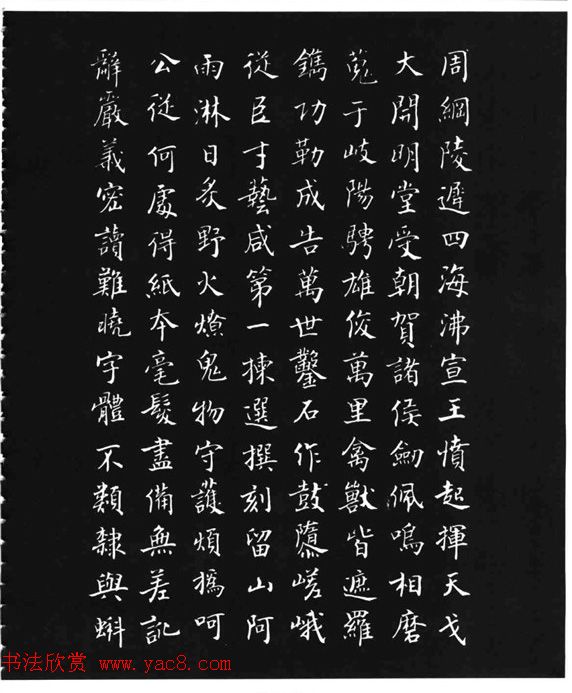 周綱陵遲四海沸宣王憤起揮天戈
大開明堂受朝賀諸侯劒佩鳴相磨
蒐于岐陽騁雄俊萬里禽獸皆遮羅
鐫功勒成告萬世鑿石作鼓隳嵯峨
從臣才藝咸第一揀選撰刻留山阿
雨淋日炙野火燎鬼物守護煩撝呵
公從何處得紙本毫髮盡備無差訛
辭嚴義密讀難曉字體不類隸與蝌
书法欣赏 www.yac8.com